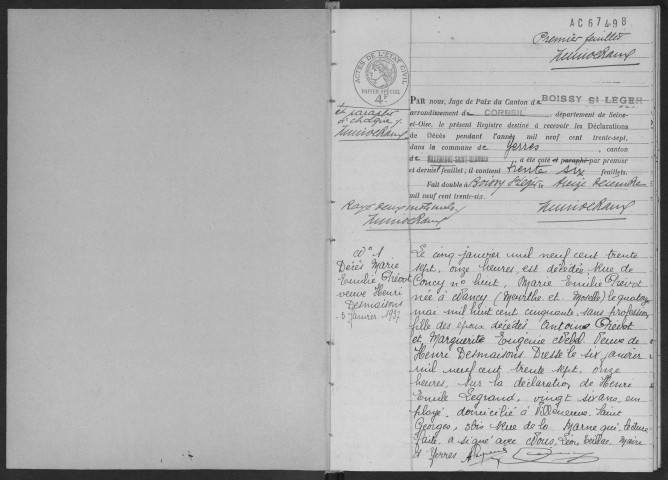 AC 67498
Premier feuillet
ACTES DE L'ÉTAT CIVIL
PAPIER SPÉCIAL
4F
PAR nous, Juge de Paix du Canton de BOISSY ST LEGER
arrondissement de CORBEIL, département de Seine-
et-Oise, le présent Registre destiné à recevoir les Déclarations
de Décès pendant l'année mil neuf cent trente-sept,
dans la commune de Yerres, canton
de a été coté et paraphé par premier
et dernier feuillet; il contient trente six feuillets.
Fait double à Boissy St Léger le treize Décembre
mil neuf cent trente-six.
et paraphé
Rayé deux mots nuls
N° 1
Décès Marie
Emilie Prévot
veuve Henri
Desmaisons
5 Janvier 1937
Le cinq janvier mil neuf cent trente
sept, onze heures, est décédée, Rue de
Concy n° huit, Marie Emilie Prévot
née à Nancy (Meurthe et Moselle) le quatorze
mai mil huit cent cinquante, sans profession,
fille des époux décédés Antoine Prévot
et Marguerite Eugénie Veuve de
Henri Desmaisons. Dressé le six janvier
mil neuf cent trente sept, onze
heures, sur la déclaration de Henri
Emile Legrand, vingt six ans, em
ployé, domicilié à Villeneuve Saint
Georges, 3bis Rue de la Marne qui, lecture
faite, a signé avec Nous, Léon Maire
d'Yerres